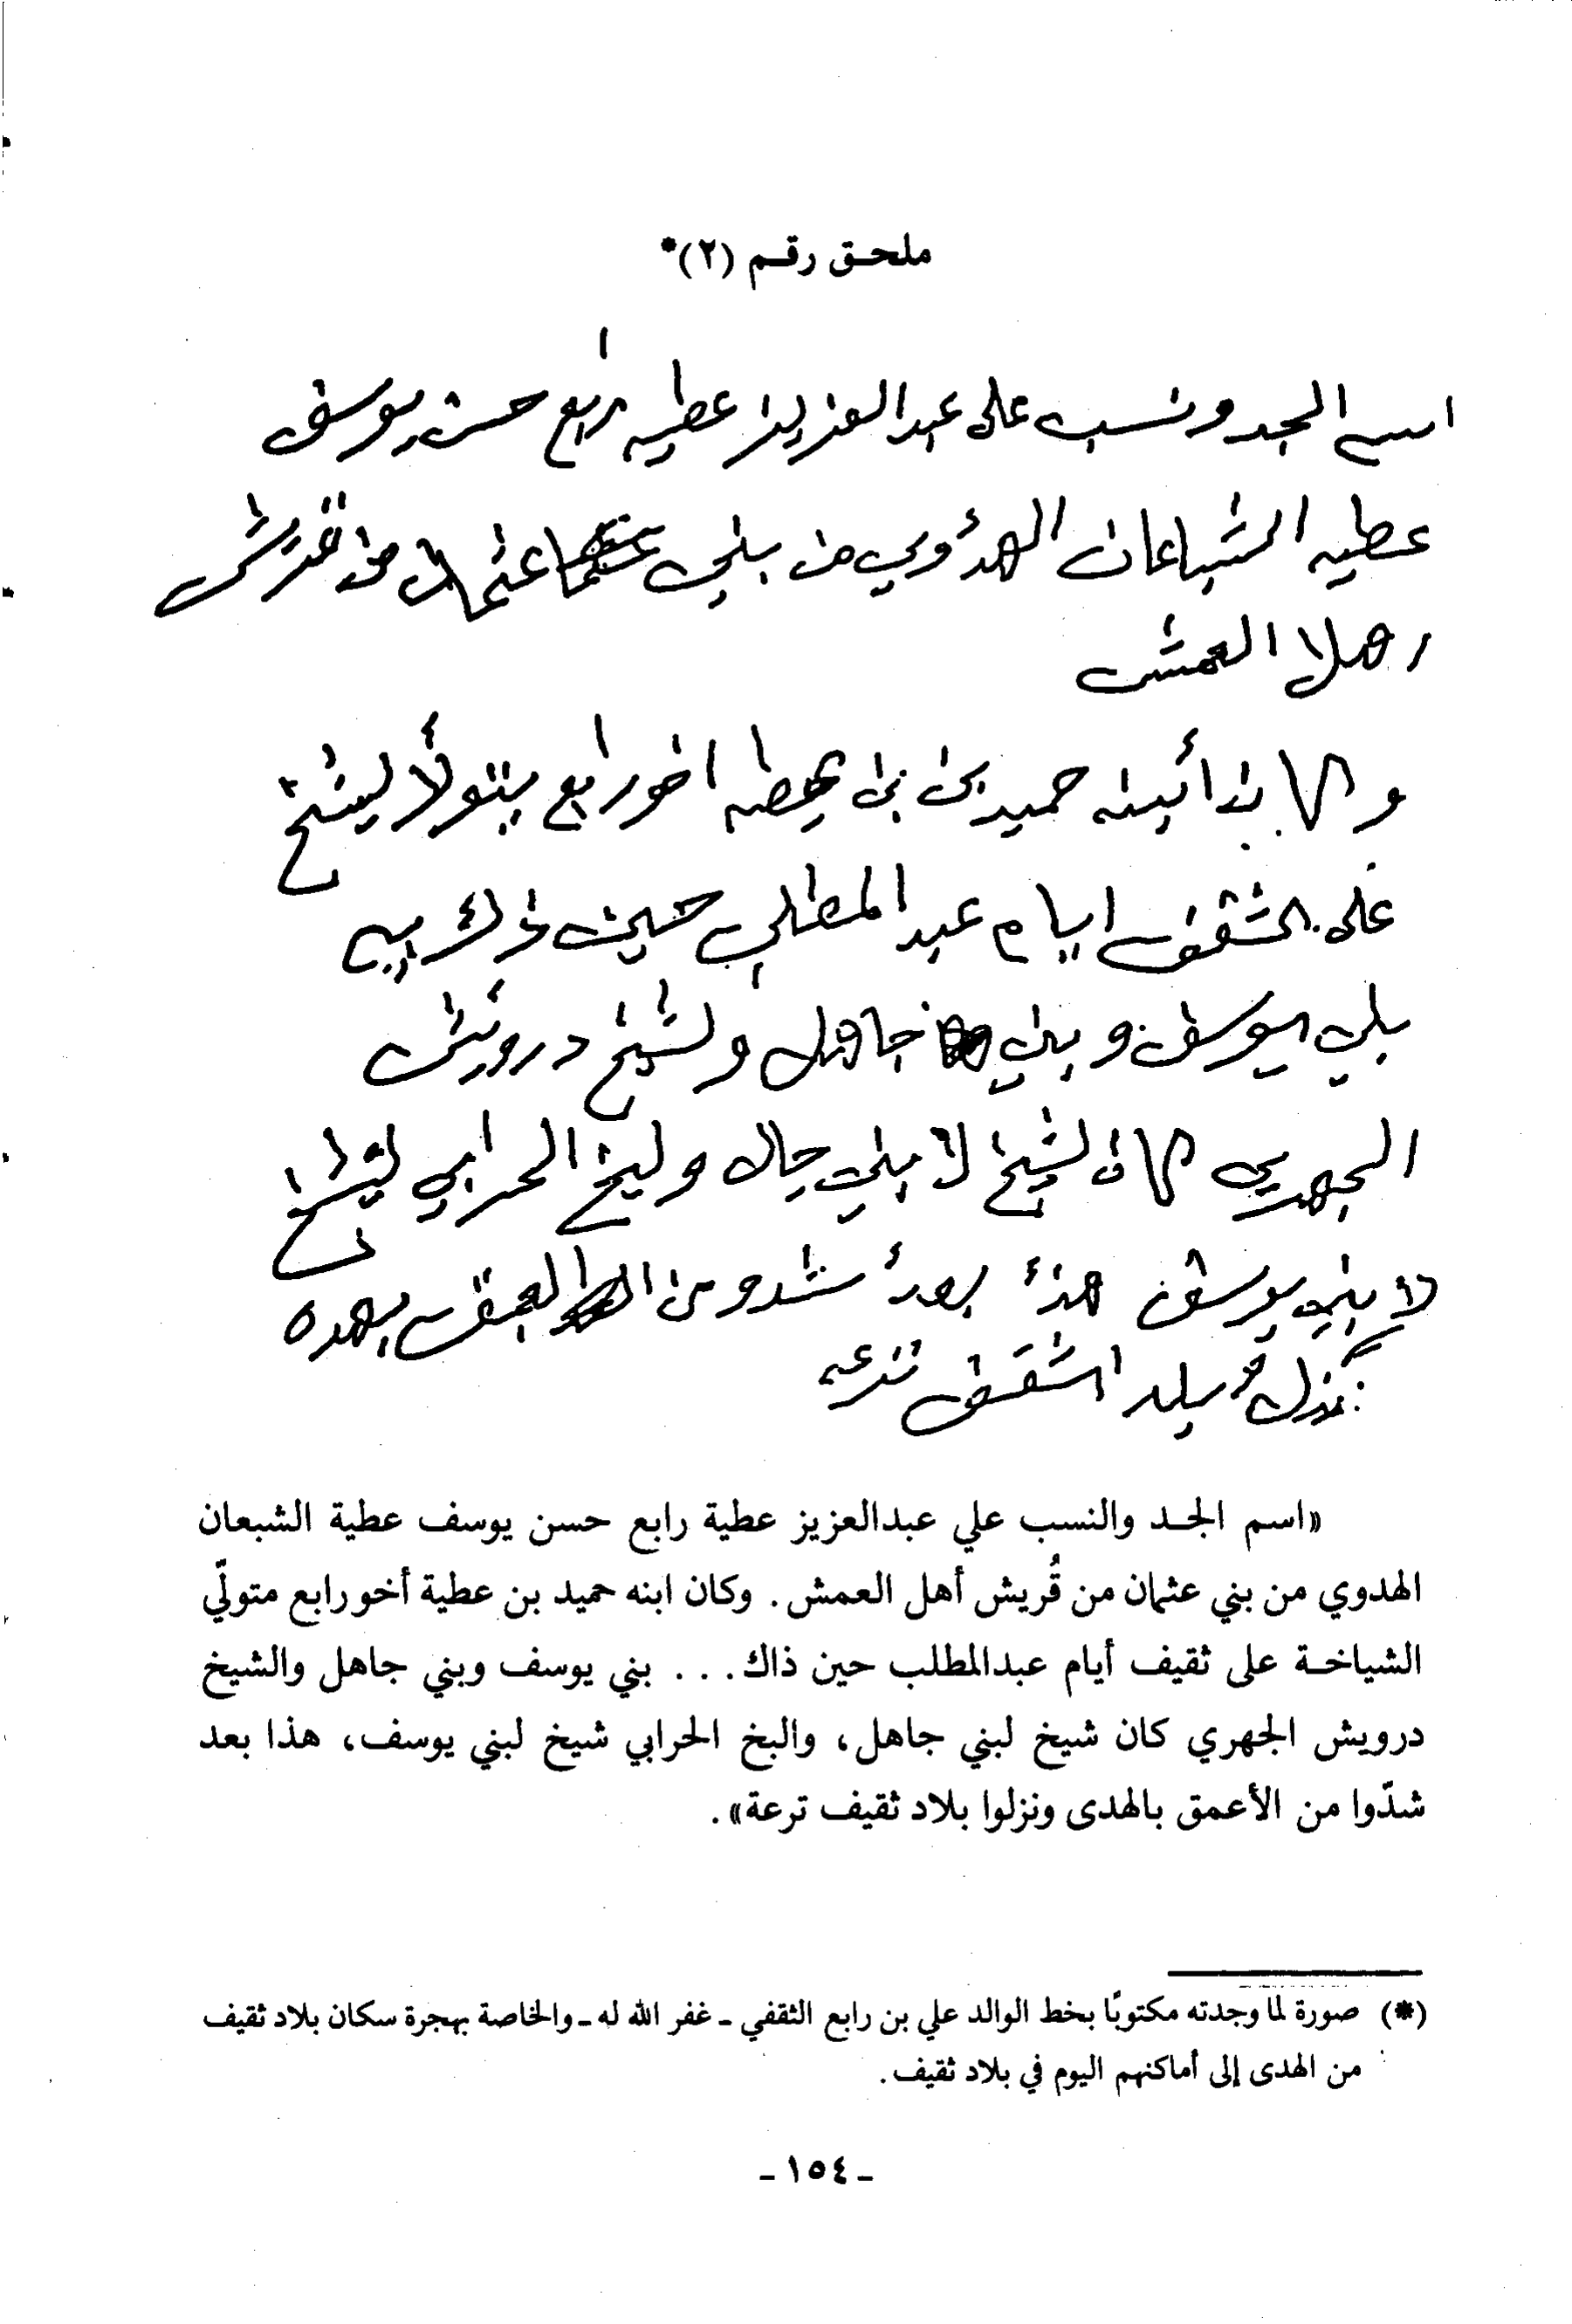 ملحـق رقـم (٢)*
اسم الجد ونسب على عبد العزيز عطيه رابع حسن يوسف
عطيه الشباعان الهدوي من بني عثمان من قريش
العمش
حميد بن عطيه اخو رابع
على ايام عبد المطلب حين ذاك
بني يوسف و بني جاهل ولشيخ درويش
الجهري كان لشيخ لا بني الحرابي
لا بني يوسف شدو من العمق بهده
ترعه
«اسم الجـد والنسب علي عبدالعزيز عطية رابع حسن يوسف عطية الشبعان
الهدوي من بني عثمان من قُريش أهل العمش. وكان ابنه حميد بن عطية أخو رابع متولّي
الشياخـة على ثقيف أيام عبدالمطلب حين ذاك. . . بني يوسف وبني جاهل والشيخ
درويش الجهري كان شيخ لبني جاهل، والبخ الحرابي شيخ لبني يوسف، هذا بعد
شدّوا من الأعمق بالهدى ونزلوا بلاد ثقيف ترعة».
(*) صورة لما وجدته مكتوبًا بخط الوالد علي بن رابع الثقفي ـ غفر الله له ـ والخاصة بهجرة سكان بلاد ثقيف
من الهدى إلى أماكنهم اليوم في بلاد ثقيف.
ـ ١٥٤ ـ